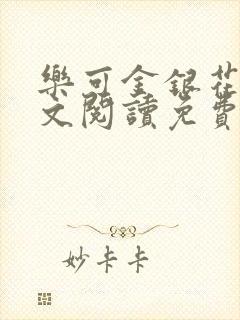 樂可金銀花
文閱讀免費
妙卡卡